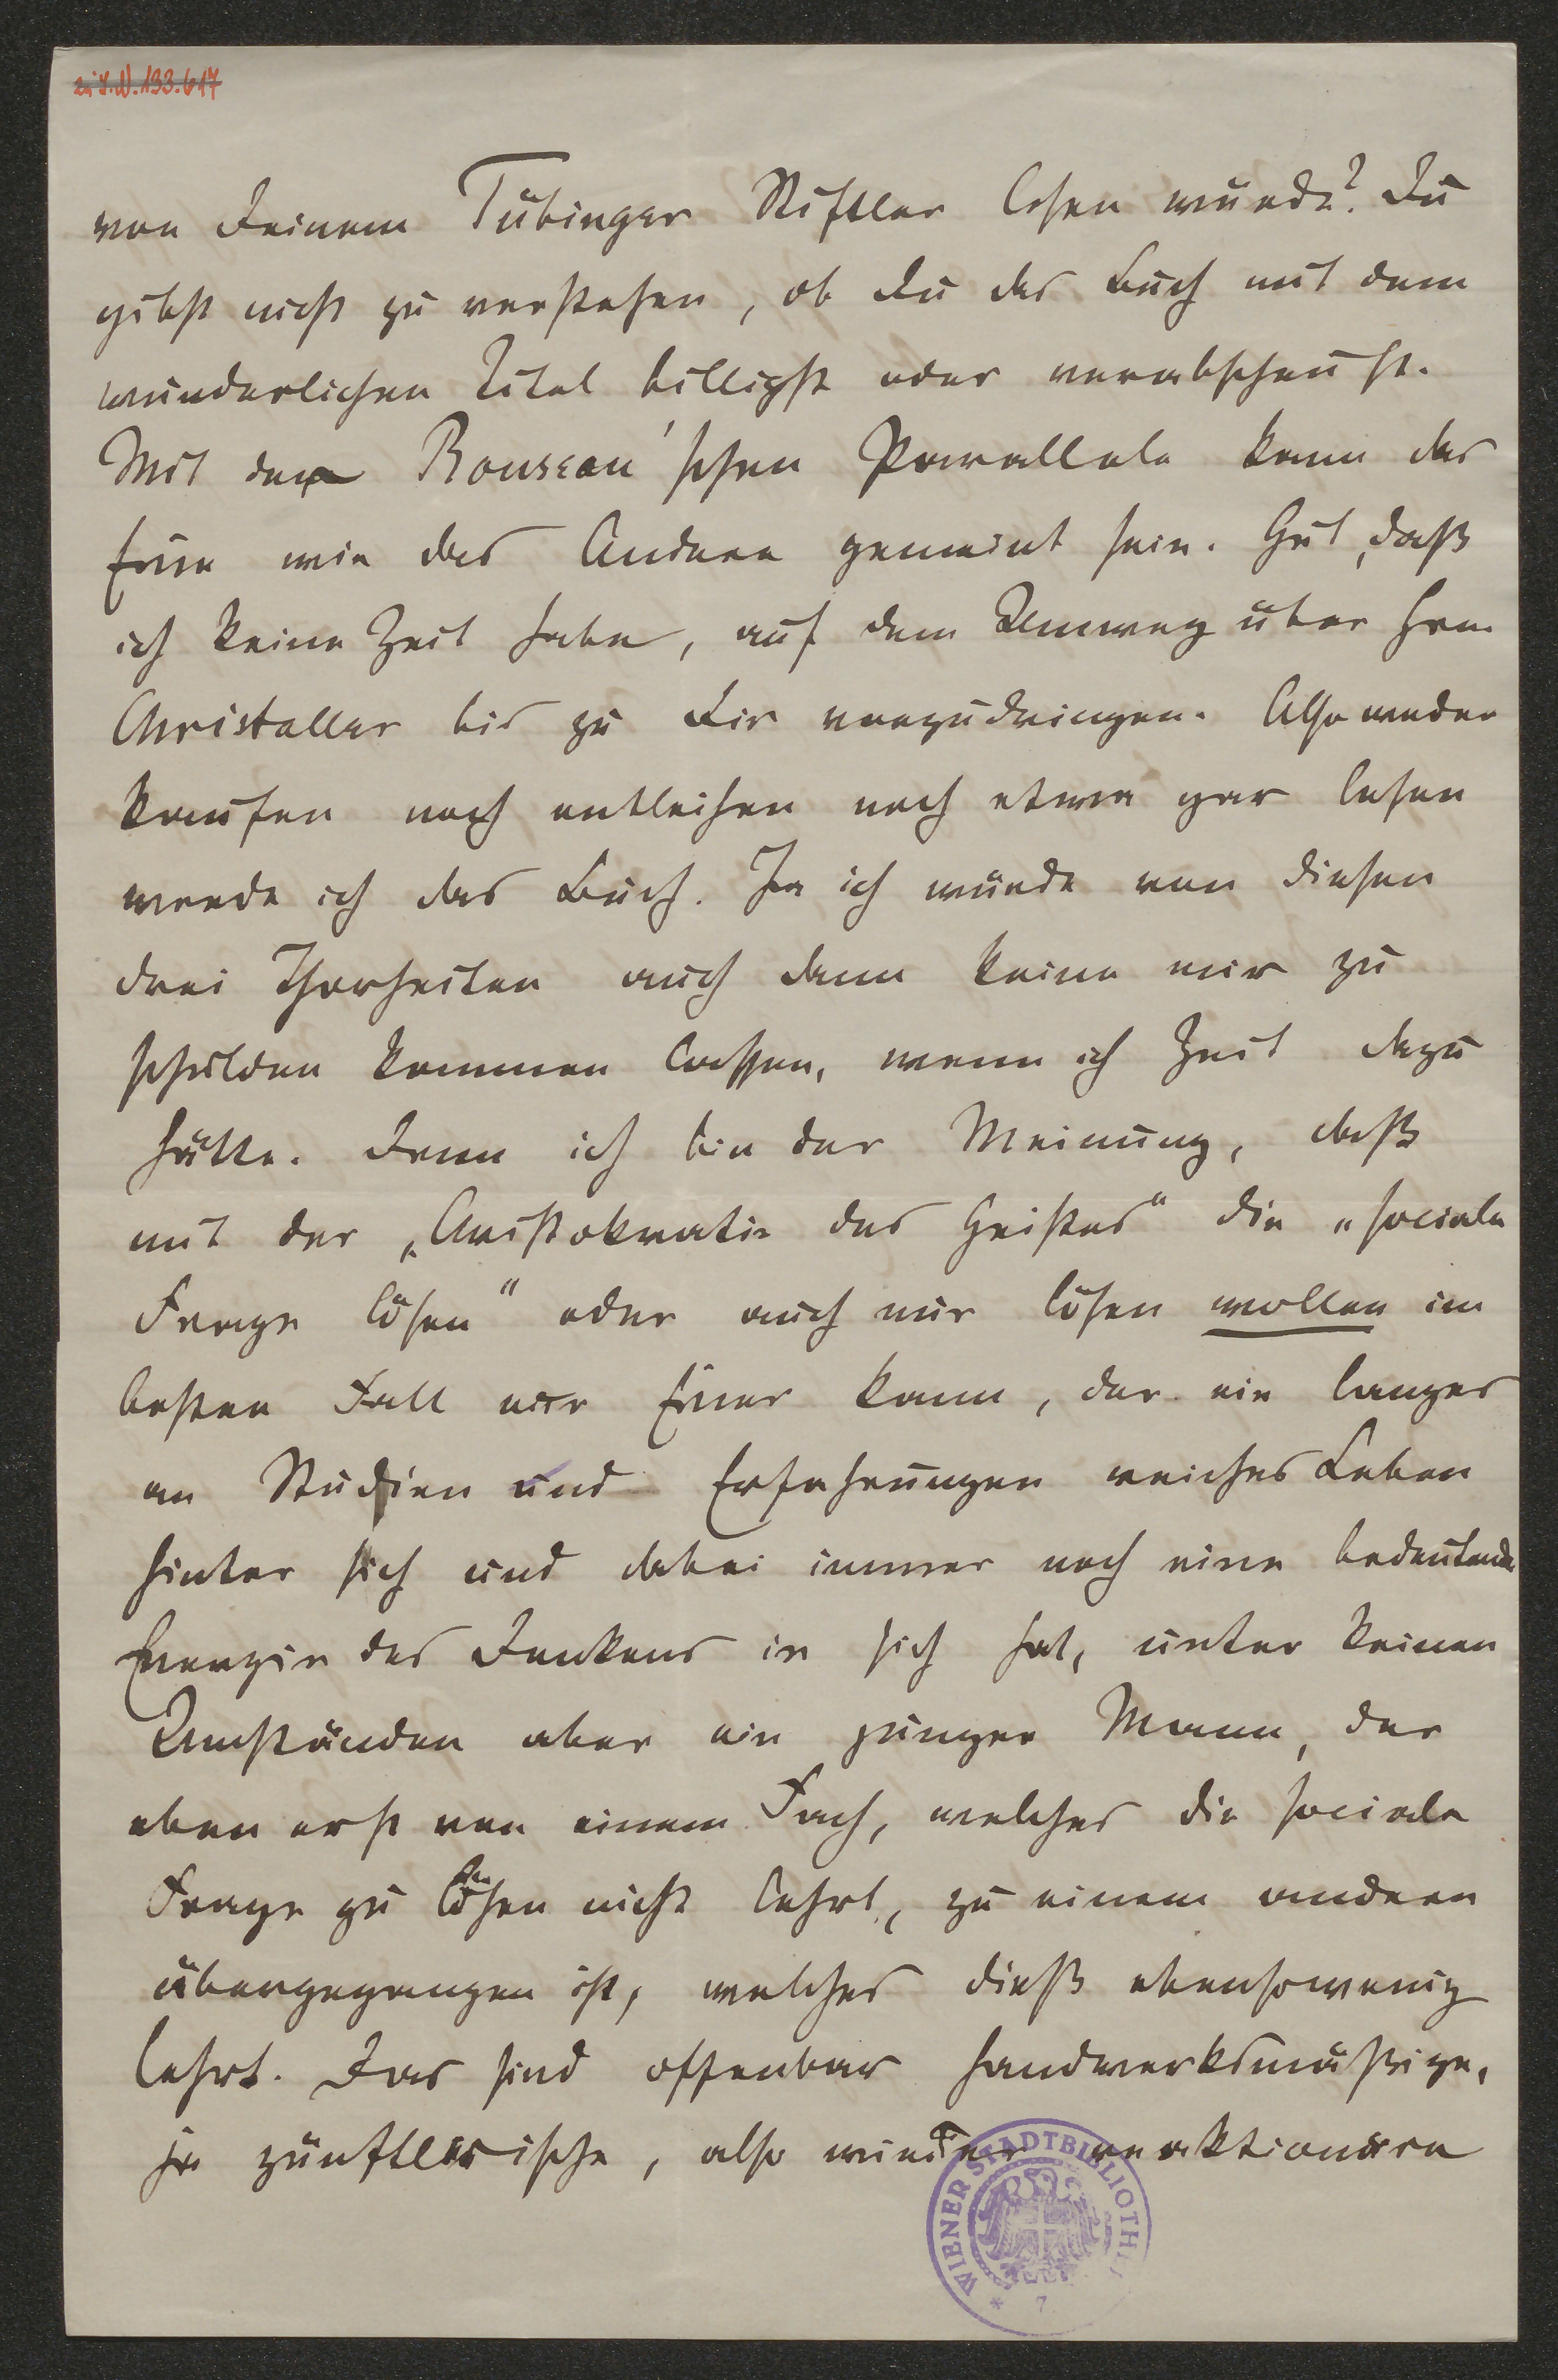 zu I.N. 133.617
von Deinem Tübinger Stiftler lesen würde? Du
gibst nicht zu verstehen, ob Du das Buch mit dem
wunderlichen Titel billigst oder verabscheust.
Mit der Rousseau'schen Parallele kann das
Eine wie das Andere gemeint sein. Gut, daß
ich keine Zeit habe, auf dem Umweg über Hrn
Christaller bis zu Dir vorzudringen. Also weder
kaufen noch entleihen noch etwa gar lesen
werde ich das Buch. Ja ich würde von diesen
drei Thorheiten auch dann keine mir zu
schulden kommen lassen, wenn ich Zeit dazu
hätte. Denn ich bin der Meinung, daß
mit der „Aristokratie des Geistes“ die „sociale
Frage lösen“ oder auch nur lösen wollen im
besten Fall nur Einer kann, der ein langes
an Studien und Erfahrungen reiches Leben
hinter sich und dabei immer noch eine bedeutende
Energie des Denkens in sich hat, unter keinen
Umständen aber ein junger Mann, der
eben erst von einem Fach, welches die sociale
Frage zu lösen nicht lehrt, zu einem andern
übergegangen ist, welches dieß ebensowenig
lehrt. Das sind offenbar handwerksmäßige,
ja zünftlerische, also wieder reaktionäre
WIENER STADTBIBLIOTHEK